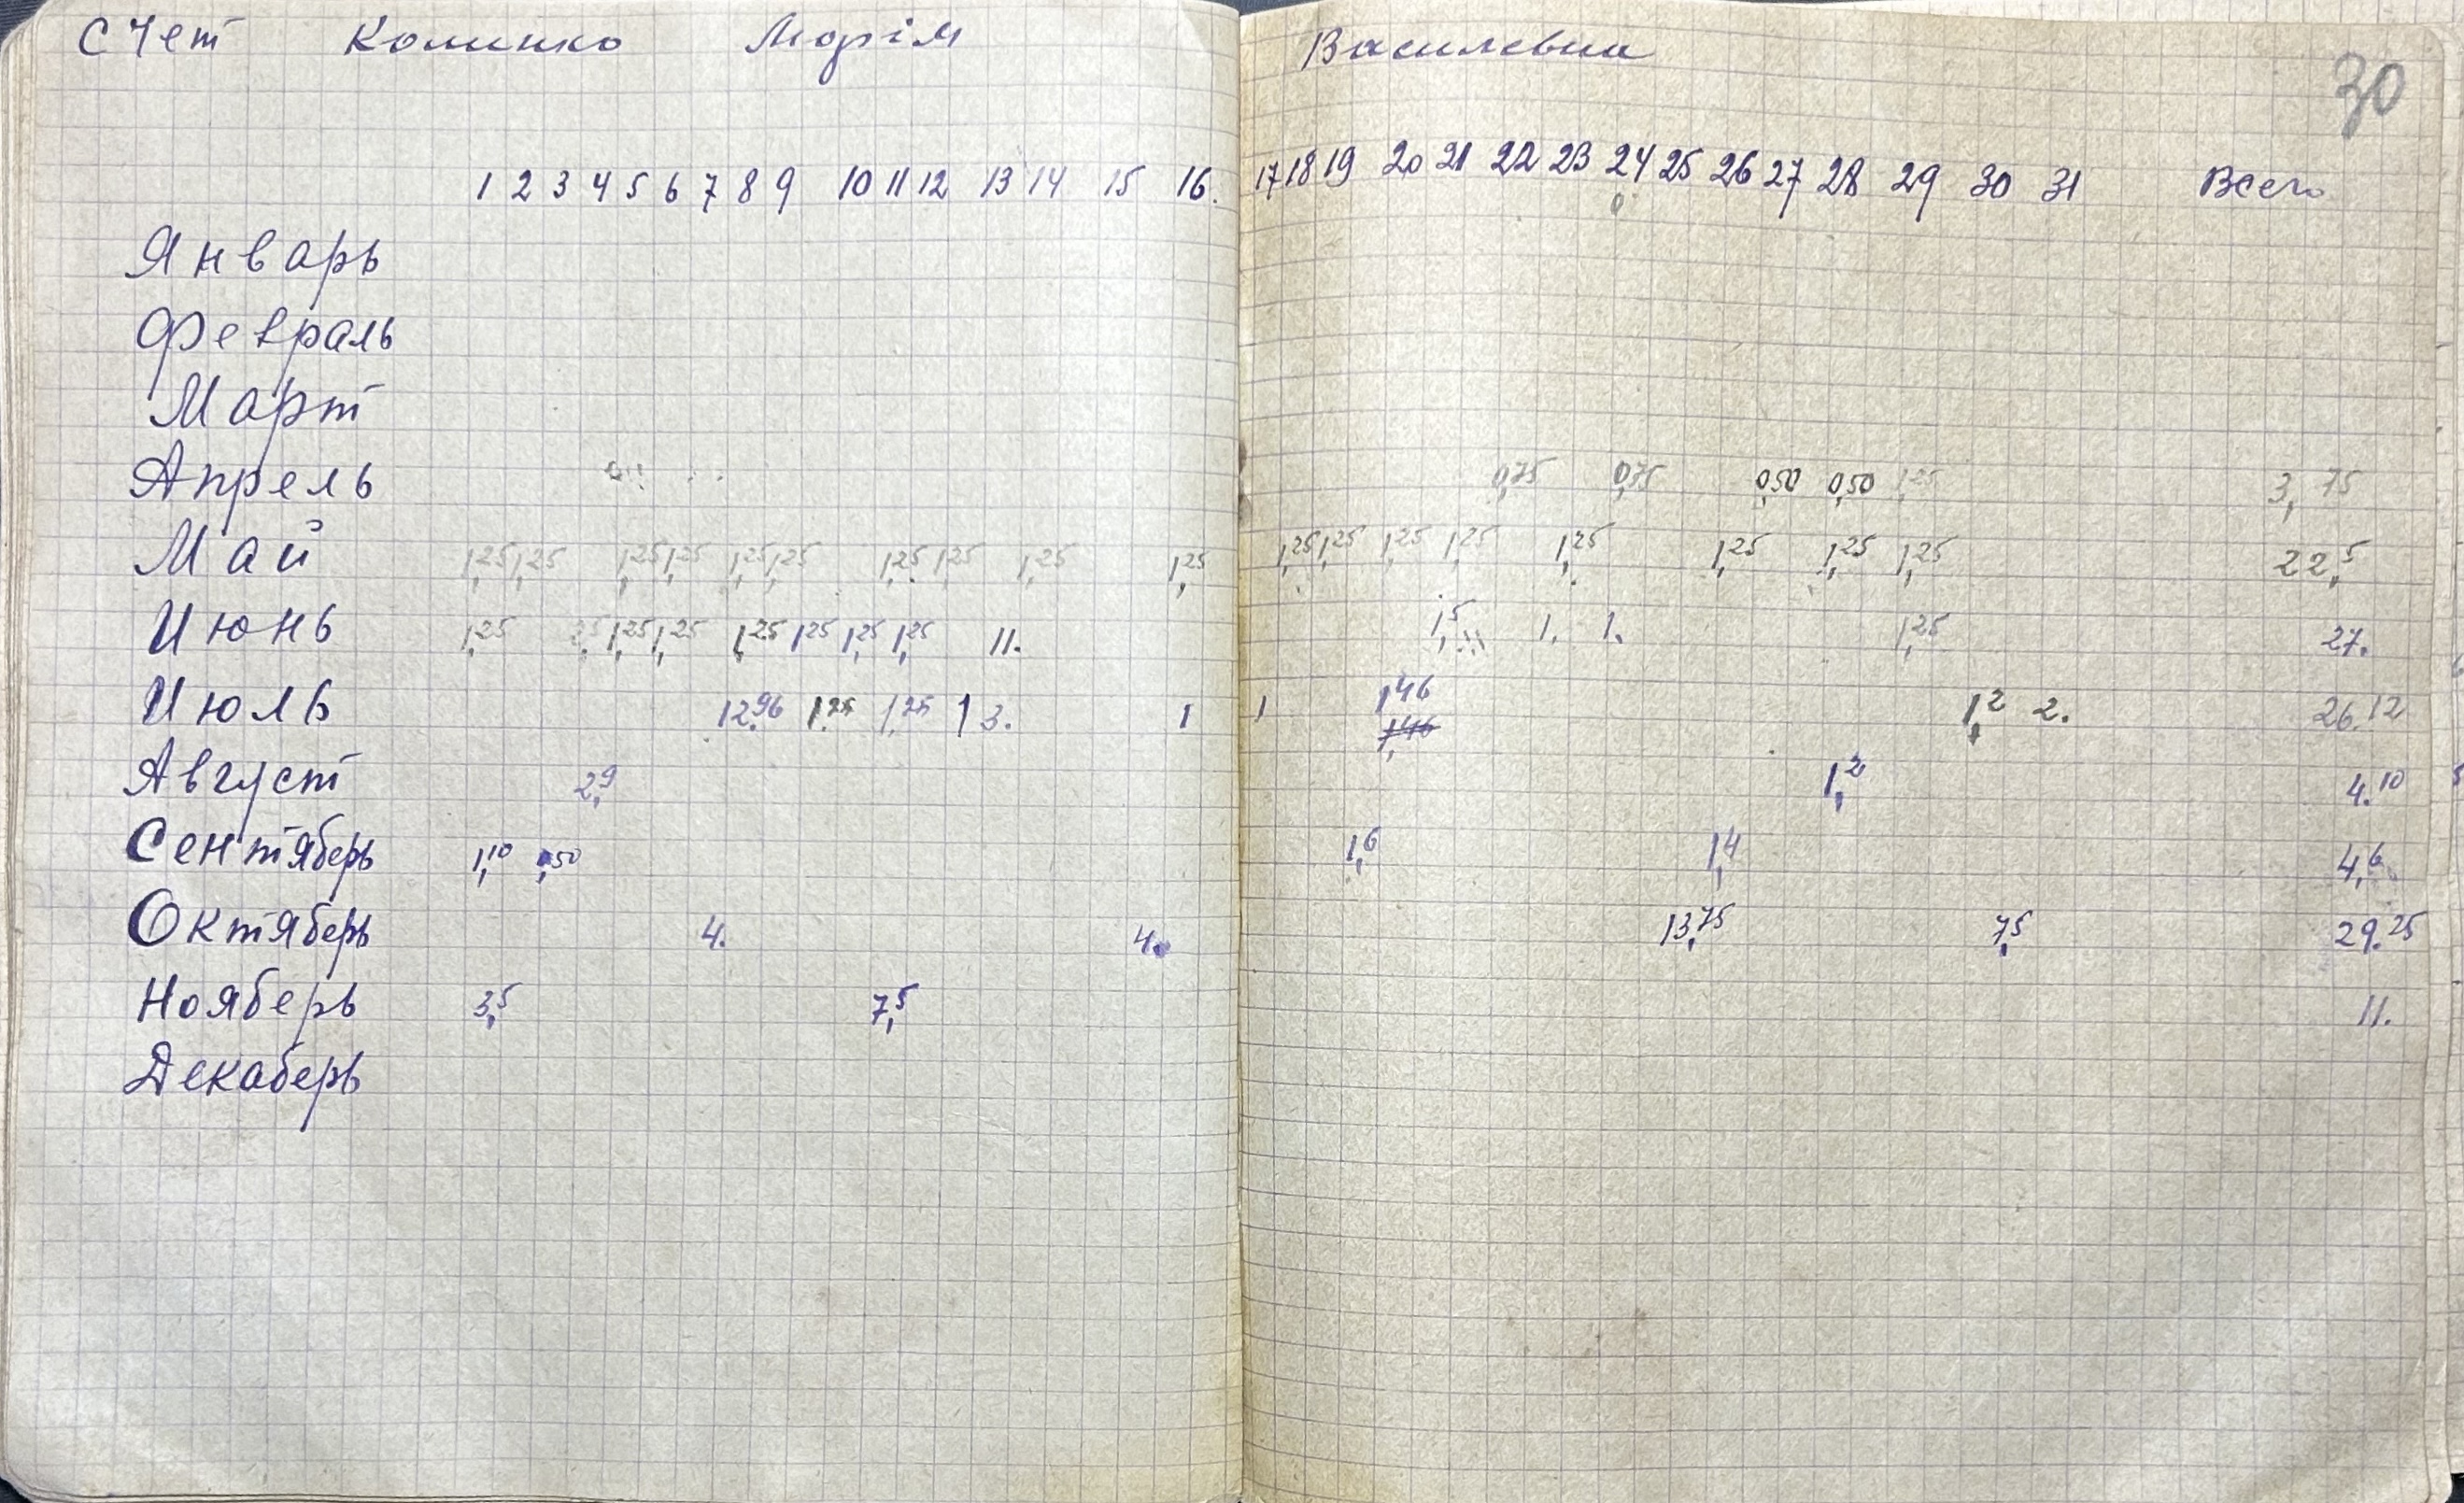 Счет Колинко Марiя Василевна
30
1 2 3 4 5 6 7 8 9 10 11 12 13 14 15 16. 17 18 19 20 21 22 23 24 25 26 27 28 29 30 31 Всего
Январь
Февраль
Март
Апрель 0,75 0,75 0,50 0,50 1,25 3,75
Май 1,25 1,25 1,25 1,25 1,25 1,25 1,25 1,25 1,25 1,25 1,25 1,25 1,25 1,25 1,25 1,25 1,25 1,25 22,5
Июнь 1,25 1,25 1,25 1,25 1,25 1,25 1,25 11. 1,5 1. 1. 1,25 27.
Июль 12.96 1.25 1,25 1 3. 1 1 1,46 1,2 2. 26.12
1,46
Август 2,9 1,2 4.10
Сентяберь 1,10 0,50 1,6 1,4 4,6
Октяберь 4. 4. 13,75 7,5 29.25
Нояберь 3,5 7,5 11.
Декаберь